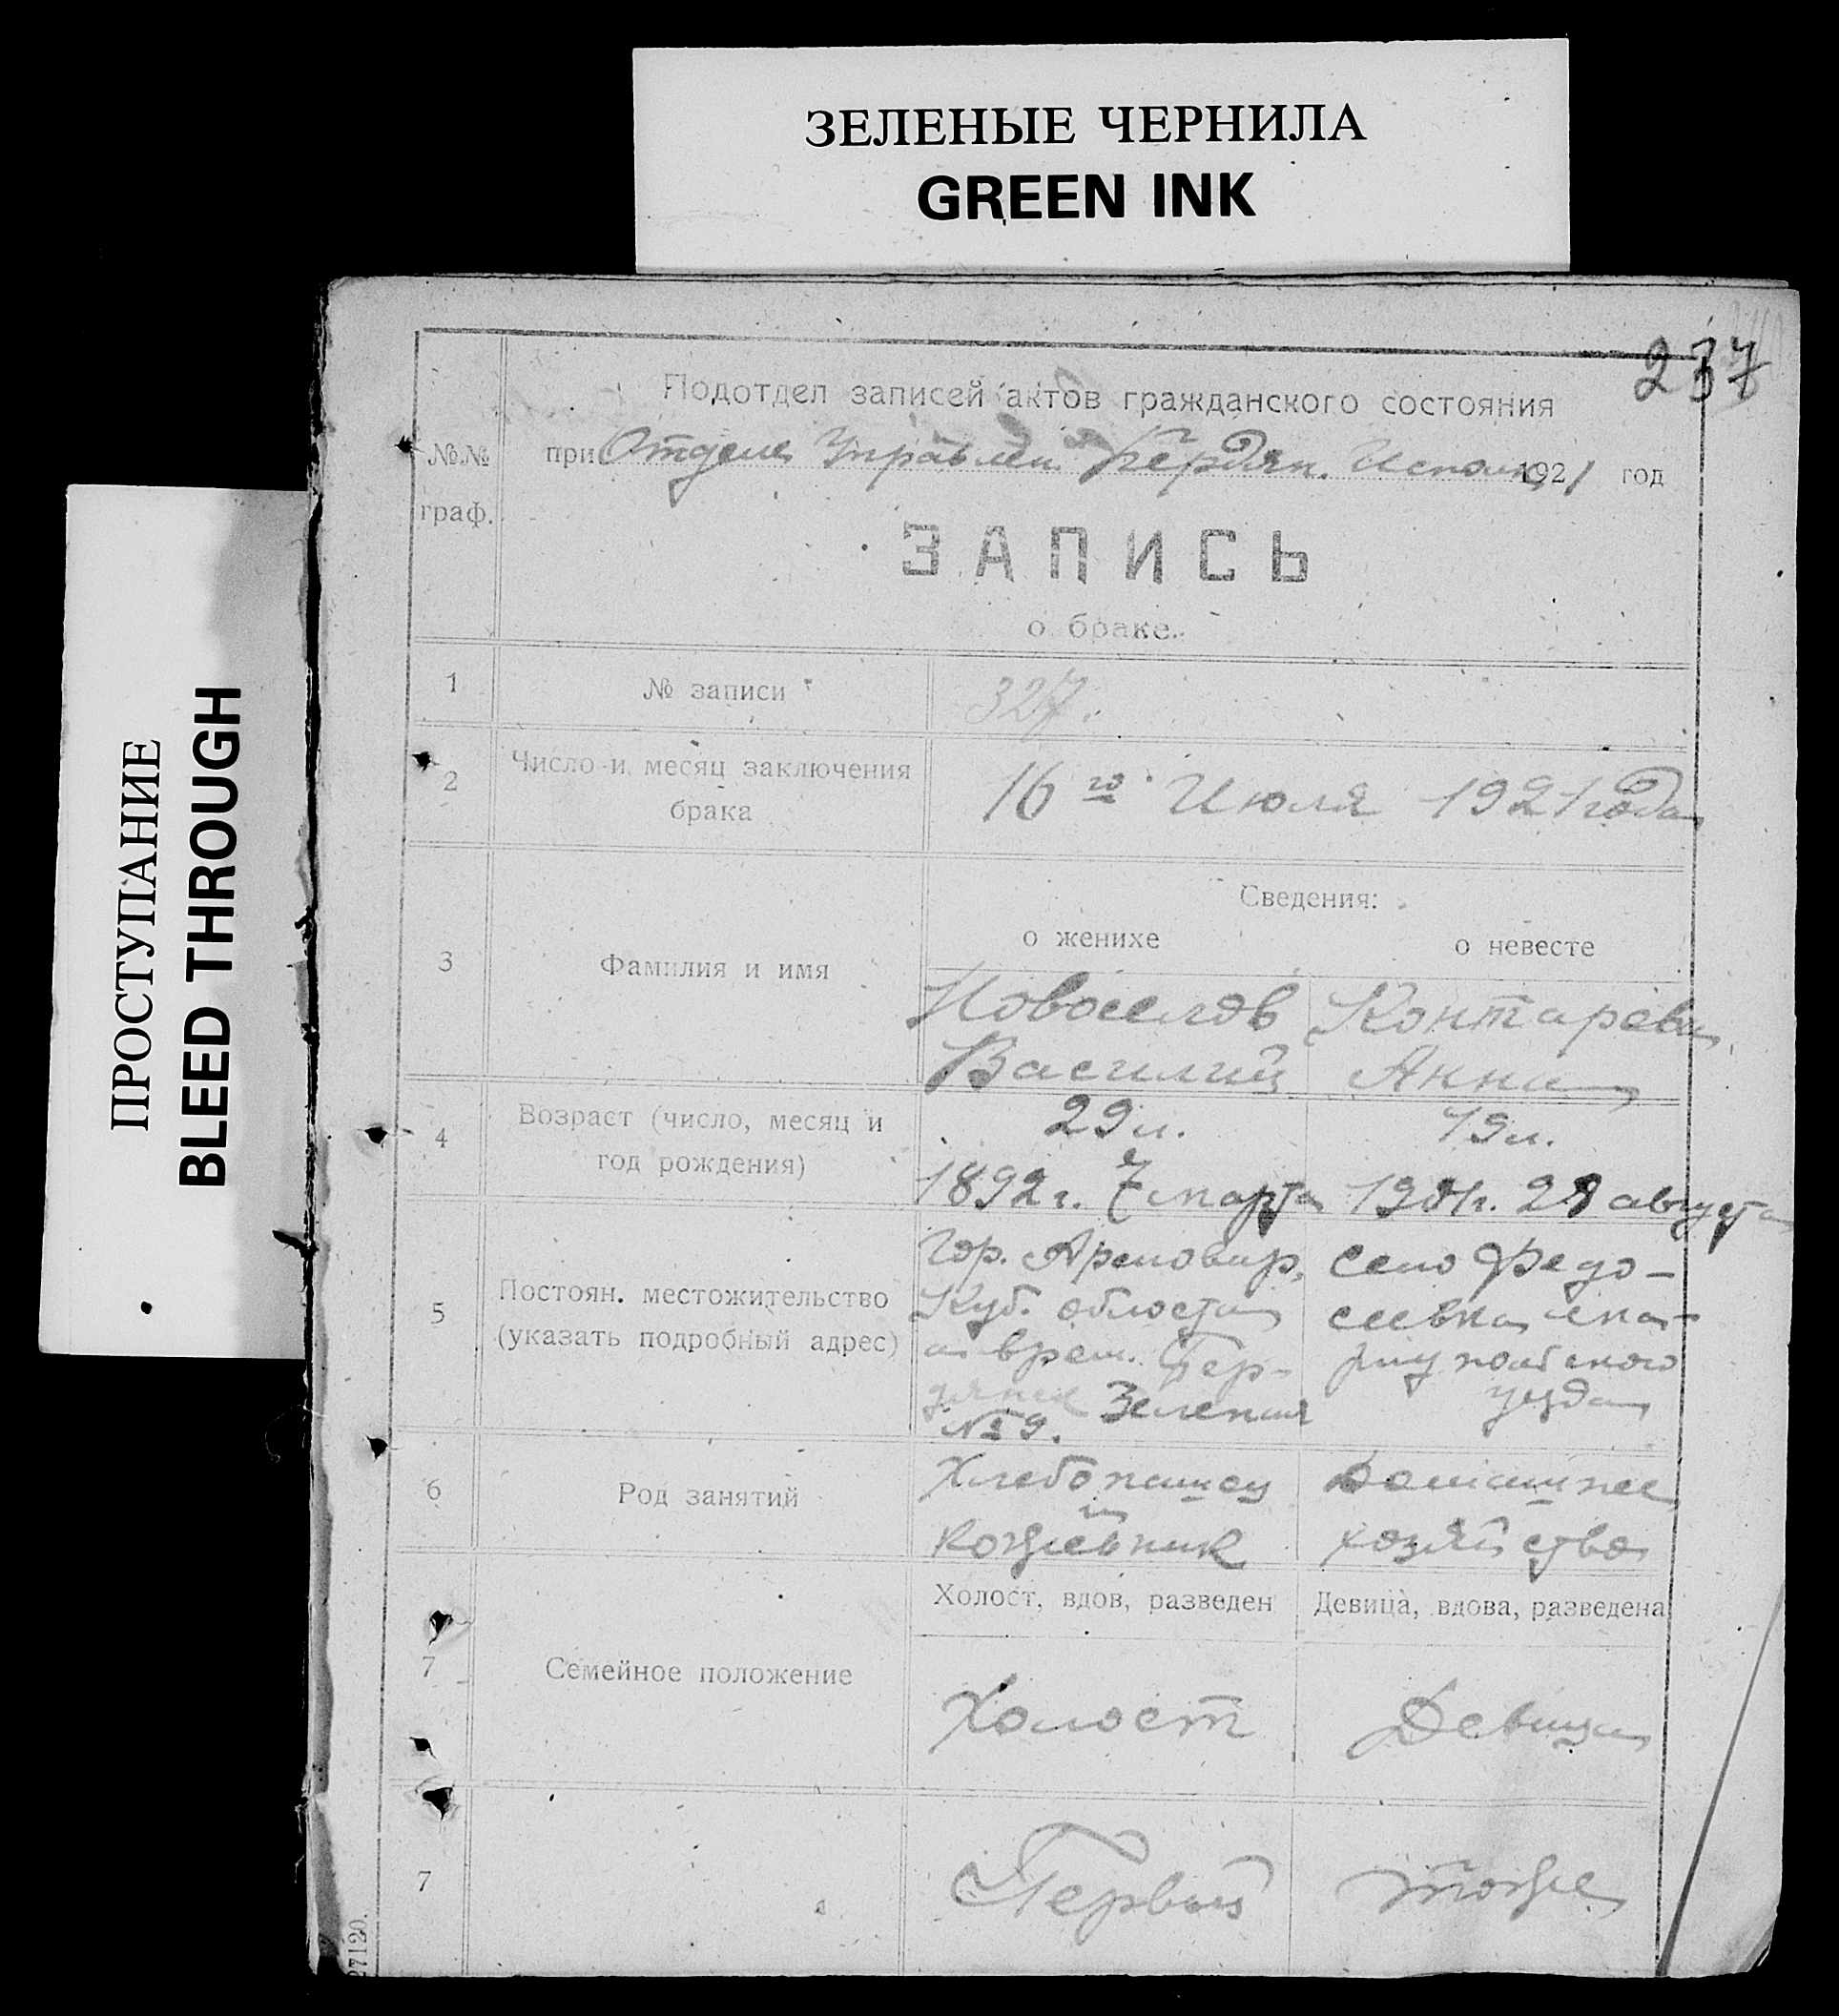 ЗЕЛЕНЫЕ ЧЕРНИЛА
GREEN INK
ПРОСТУПАНИЕ
BLEED THROUGH
237
Подотдел записей актов гражданского состояния
№№ граф.
при Отделе Управлен. Бердян. Исполк. 1921 год
ЗАПИСЬ
о браке.
1 № записи 327.
2 Число и месяц заключения брака
16го Июля 1921 года
Сведения:
о женихе о невесте
3 Фамилия и имя
Новоселов Контарева
Василий Анна
4 Возраст (число, месяц и год рождения)
29 л. 19 л.
1892 г. 7 марта 1901 г. 28 августа
5 Постоян. местожительство (указать подробный адрес)
Гор. Армовир, село Федо-
Куб. области сеевка Ма-
а врем. Бер- риупольского
дянск Зеленая уезда
№ 9.
6 Род занятий
Хлебопашец Домашнее
и
кожевник хозяйство
Холост, вдов, разведен Девица, вдова, разведена
7 Семейное положение
Холост Девица
7 Первый тоже
27120.